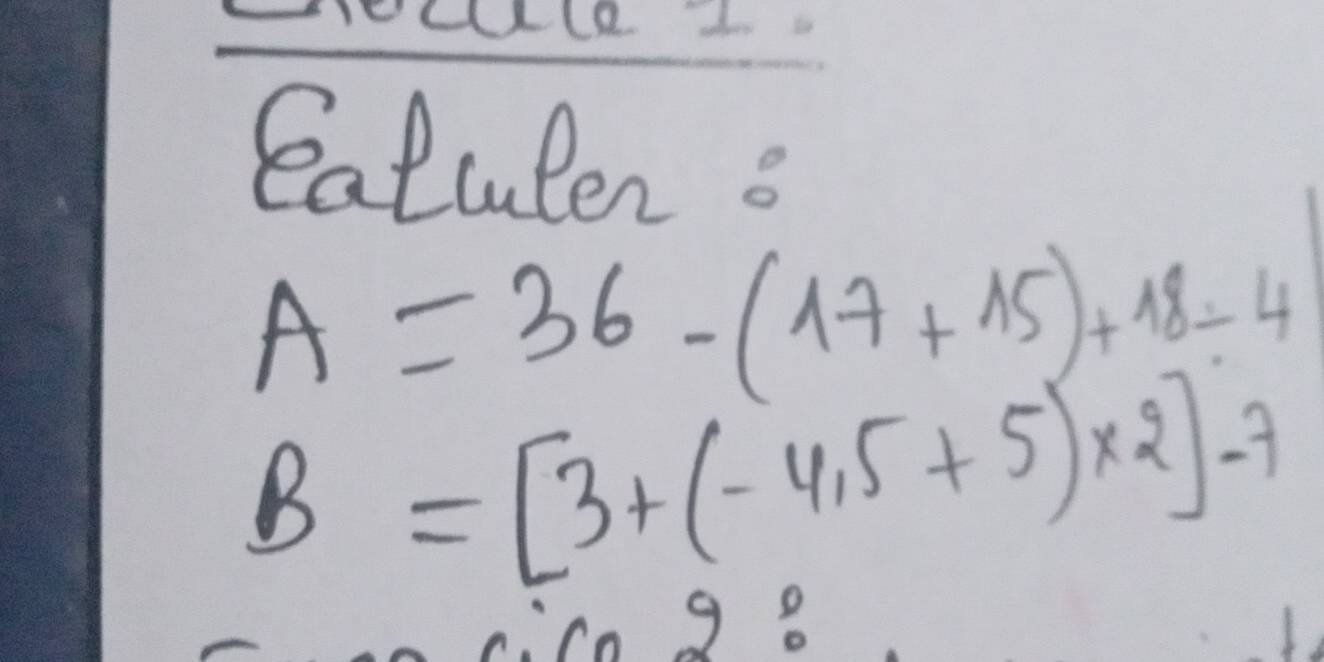 Calculer :
A = 36 - (17 + 15) + 18 ÷ 4
B = [3 + (-4,5 + 5) × 2] - 7